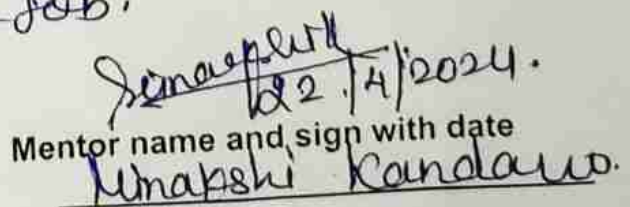 Job.
22/4/2024.
Mentor name and sign with date
Minakshi Kandalw.